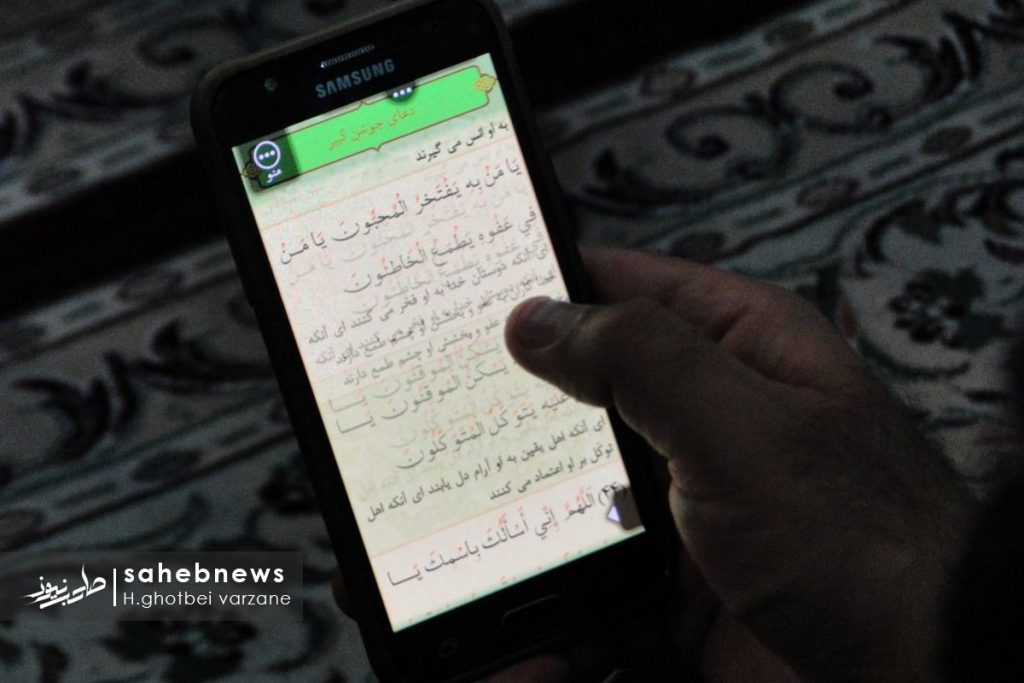 SAMSUNG
دعای جوشن کبیر
منو
به او انس می گیرند
يَا مَنْ بِهِ يَفْتَخِرُ الْمُحِبُّونَ يَا مَنْ
فِي عَفْوِهِ يَطْمَعُ الْخَاطِئُونَ
ای آنکه دوستان خدا به او فخر می کنند ای آنکه
عفو و بخشش او چشم طمع دارند
يَسْكُنُ الْمُوقِنُونَ يَا
عَلَيْهِ يَتَوَكَّلُ الْمُتَوَكِّلُونَ
ای آنکه اهل یقین به او آرام دل یابند ای آنکه اهل
توکل بر او اعتماد می کنند
اَللّٰهُمَّ اِنِّي أَسْأَلُكَ بِاسْمِكَ يَا
sahebnews
H.ghotbei varzane
صاحب نیوز